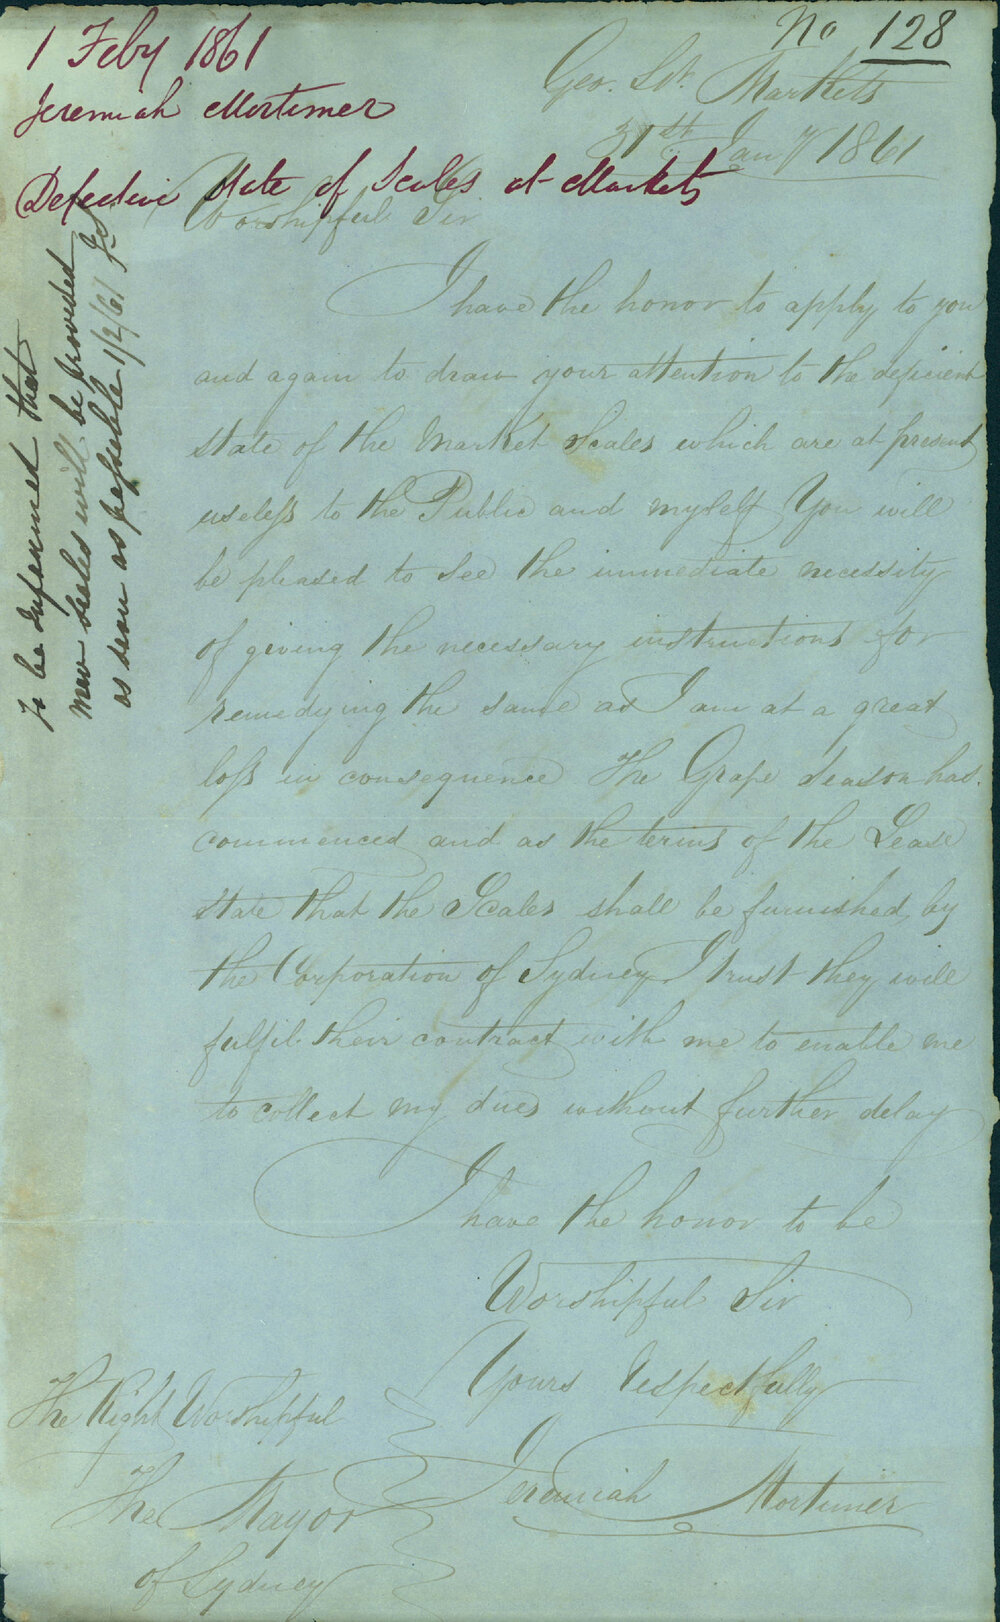 No 128
1 Feby 1861
Jeremiah Mortimer
Defective State of Scales at Markets
Geo. St. Markets
31st Jany 1861
Worshipful Sir
I have the honor to apply to you
and again to draw your attention to the deficient
state of the Market Scales which are at present
useless to the Public and myself You will
be pleased to see the immediate necessity
of giving the necessary instructions for
remedying the same as I am at a great
loss in consequence The Grape Season has
commenced and as the terms of the Lease
state that the Scales shall be furnished by
the Corporation of Sydney I trust they will
fulfil their contract with me to enable me
to collect my dues without further delay
I have the honor to be
Worshipful Sir
Yours respectfully
Jeremiah Mortimer
The Right Worshipful
The Mayor
of Sydney
To be informed that
new scales will be provided
as soon as possible 1/2/61